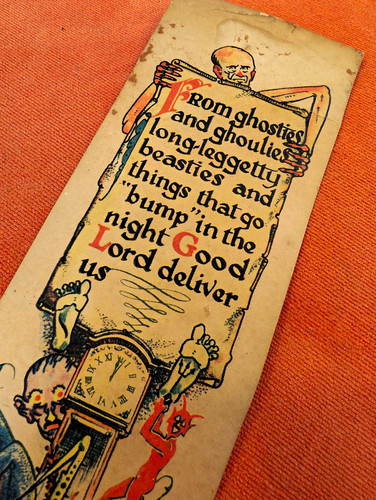 From ghosties
and ghoulies
long-leggetty
beasties and
things that go
"bump" in the
night Good
Lord deliver
us